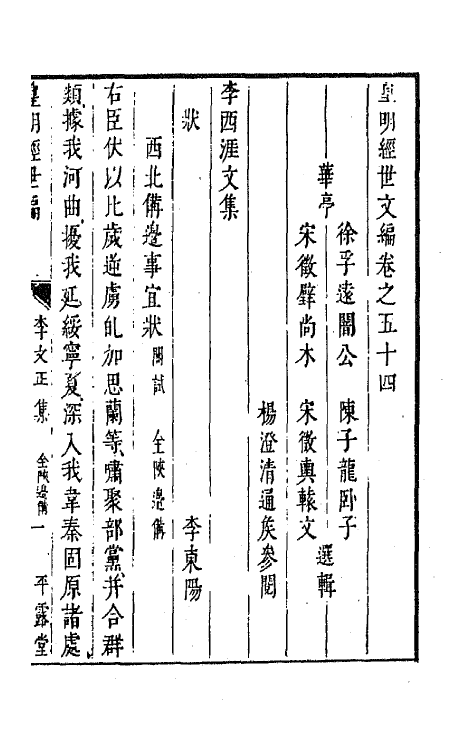 皇明經世文編卷之五十四
華亭
徐孚遠闇公 陳子龍臥子
宋徵璧尚木 宋徵輿轅文
選輯
楊澄清通矦參閱
李西涯文集
狀 李東陽
西北備邊事宜狀 閣試 全陜邊備
右臣伏以比歲逆虜乩加思蘭等嘯聚部黨并合群
類據我河曲擾我延綏寧夏深入我韋秦固原諸處
皇明經世編 李文正集 全陜邊備 一 平露堂